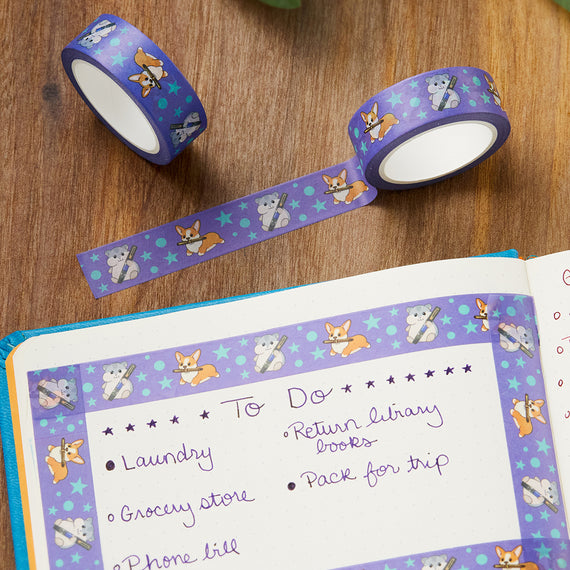 ★ ★ ★ ★ ★ To Do ★ ★ ★ ★ ★ ★ ★ ★
● Laundry
○ Grocery store
○ Phone bill
○ Return library
books
● Pack for trip